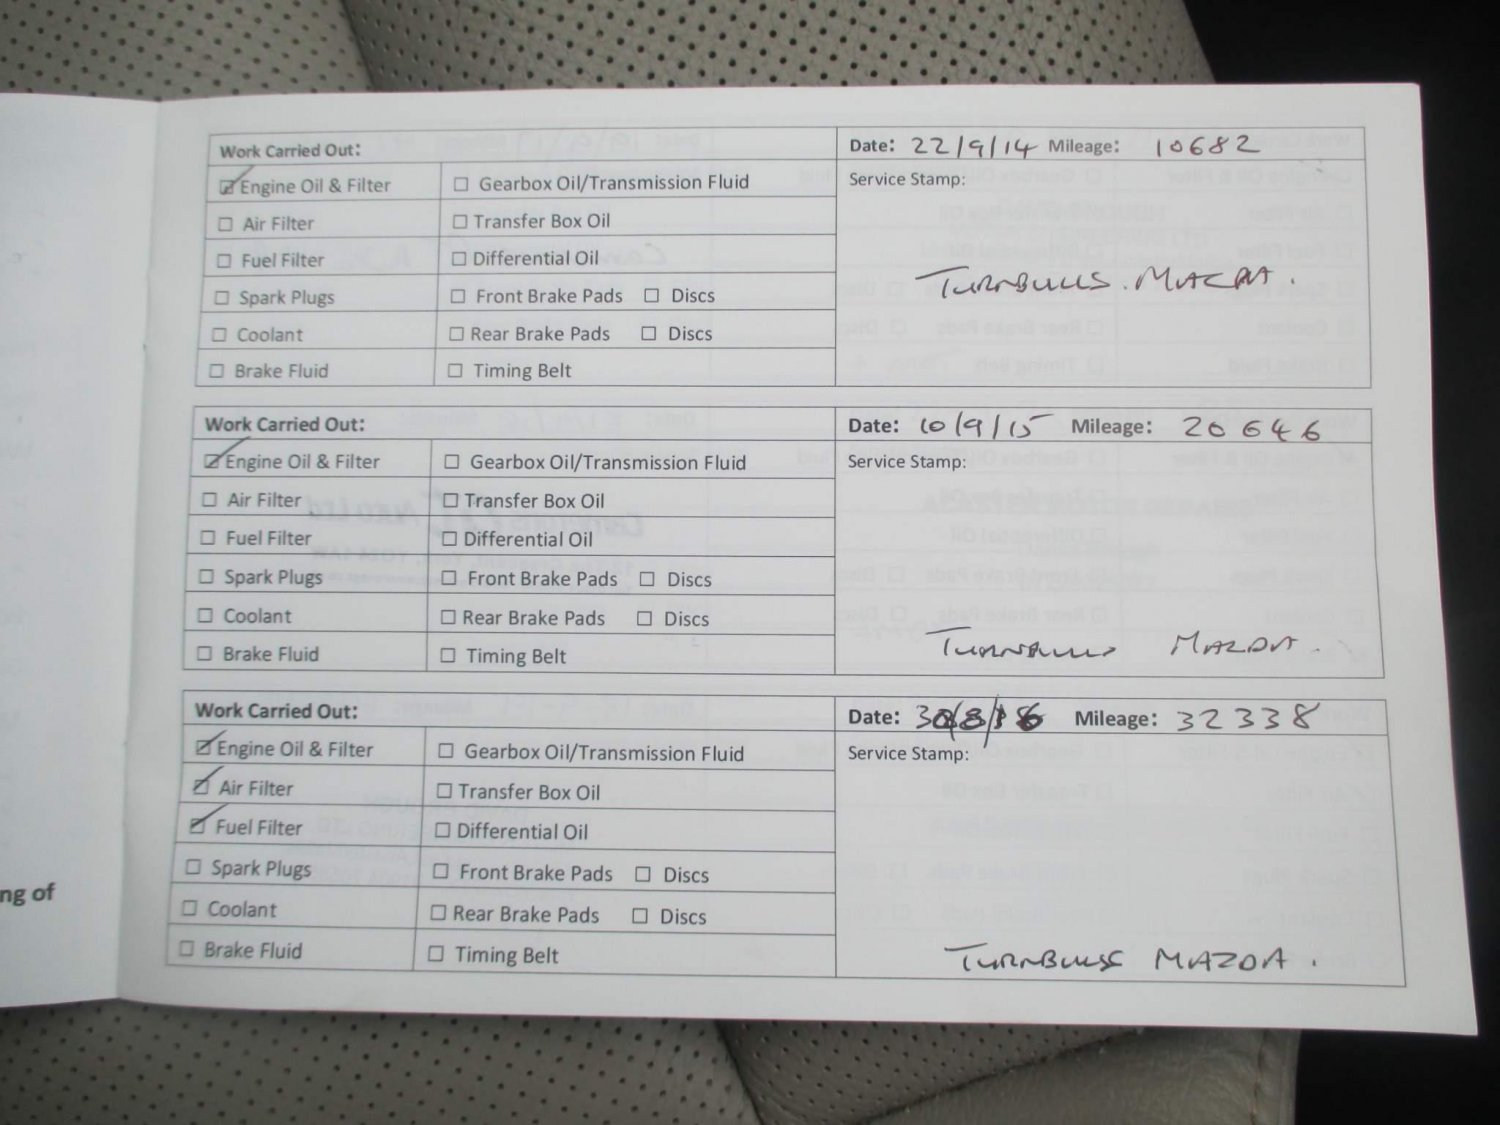 Work Carried Out: Date: 22/9/14 Mileage: 10682
☑ Engine Oil & Filter ☐ Gearbox Oil/Transmission Fluid Service Stamp:
☐ Air Filter ☐ Transfer Box Oil
☐ Fuel Filter ☐ Differential Oil
☐ Spark Plugs ☐ Front Brake Pads ☐ Discs TURNBULLS. MAZDA.
☐ Coolant ☐ Rear Brake Pads ☐ Discs
☐ Brake Fluid ☐ Timing Belt
Work Carried Out: Date: 10/9/15 Mileage: 20646
☑ Engine Oil & Filter ☐ Gearbox Oil/Transmission Fluid Service Stamp:
☐ Air Filter ☐ Transfer Box Oil
☐ Fuel Filter ☐ Differential Oil
☐ Spark Plugs ☐ Front Brake Pads ☐ Discs
☐ Coolant ☐ Rear Brake Pads ☐ Discs TURNBULLS MAZDA.
☐ Brake Fluid ☐ Timing Belt
Work Carried Out: Date: Mileage: 32338
☑ Engine Oil & Filter ☐ Gearbox Oil/Transmission Fluid Service Stamp:
☑ Air Filter ☐ Transfer Box Oil
☑ Fuel Filter ☐ Differential Oil
☐ Spark Plugs ☐ Front Brake Pads ☐ Discs
ng of
☐ Coolant ☐ Rear Brake Pads ☐ Discs
☐ Brake Fluid ☐ Timing Belt TURNBULLS MAZDA.